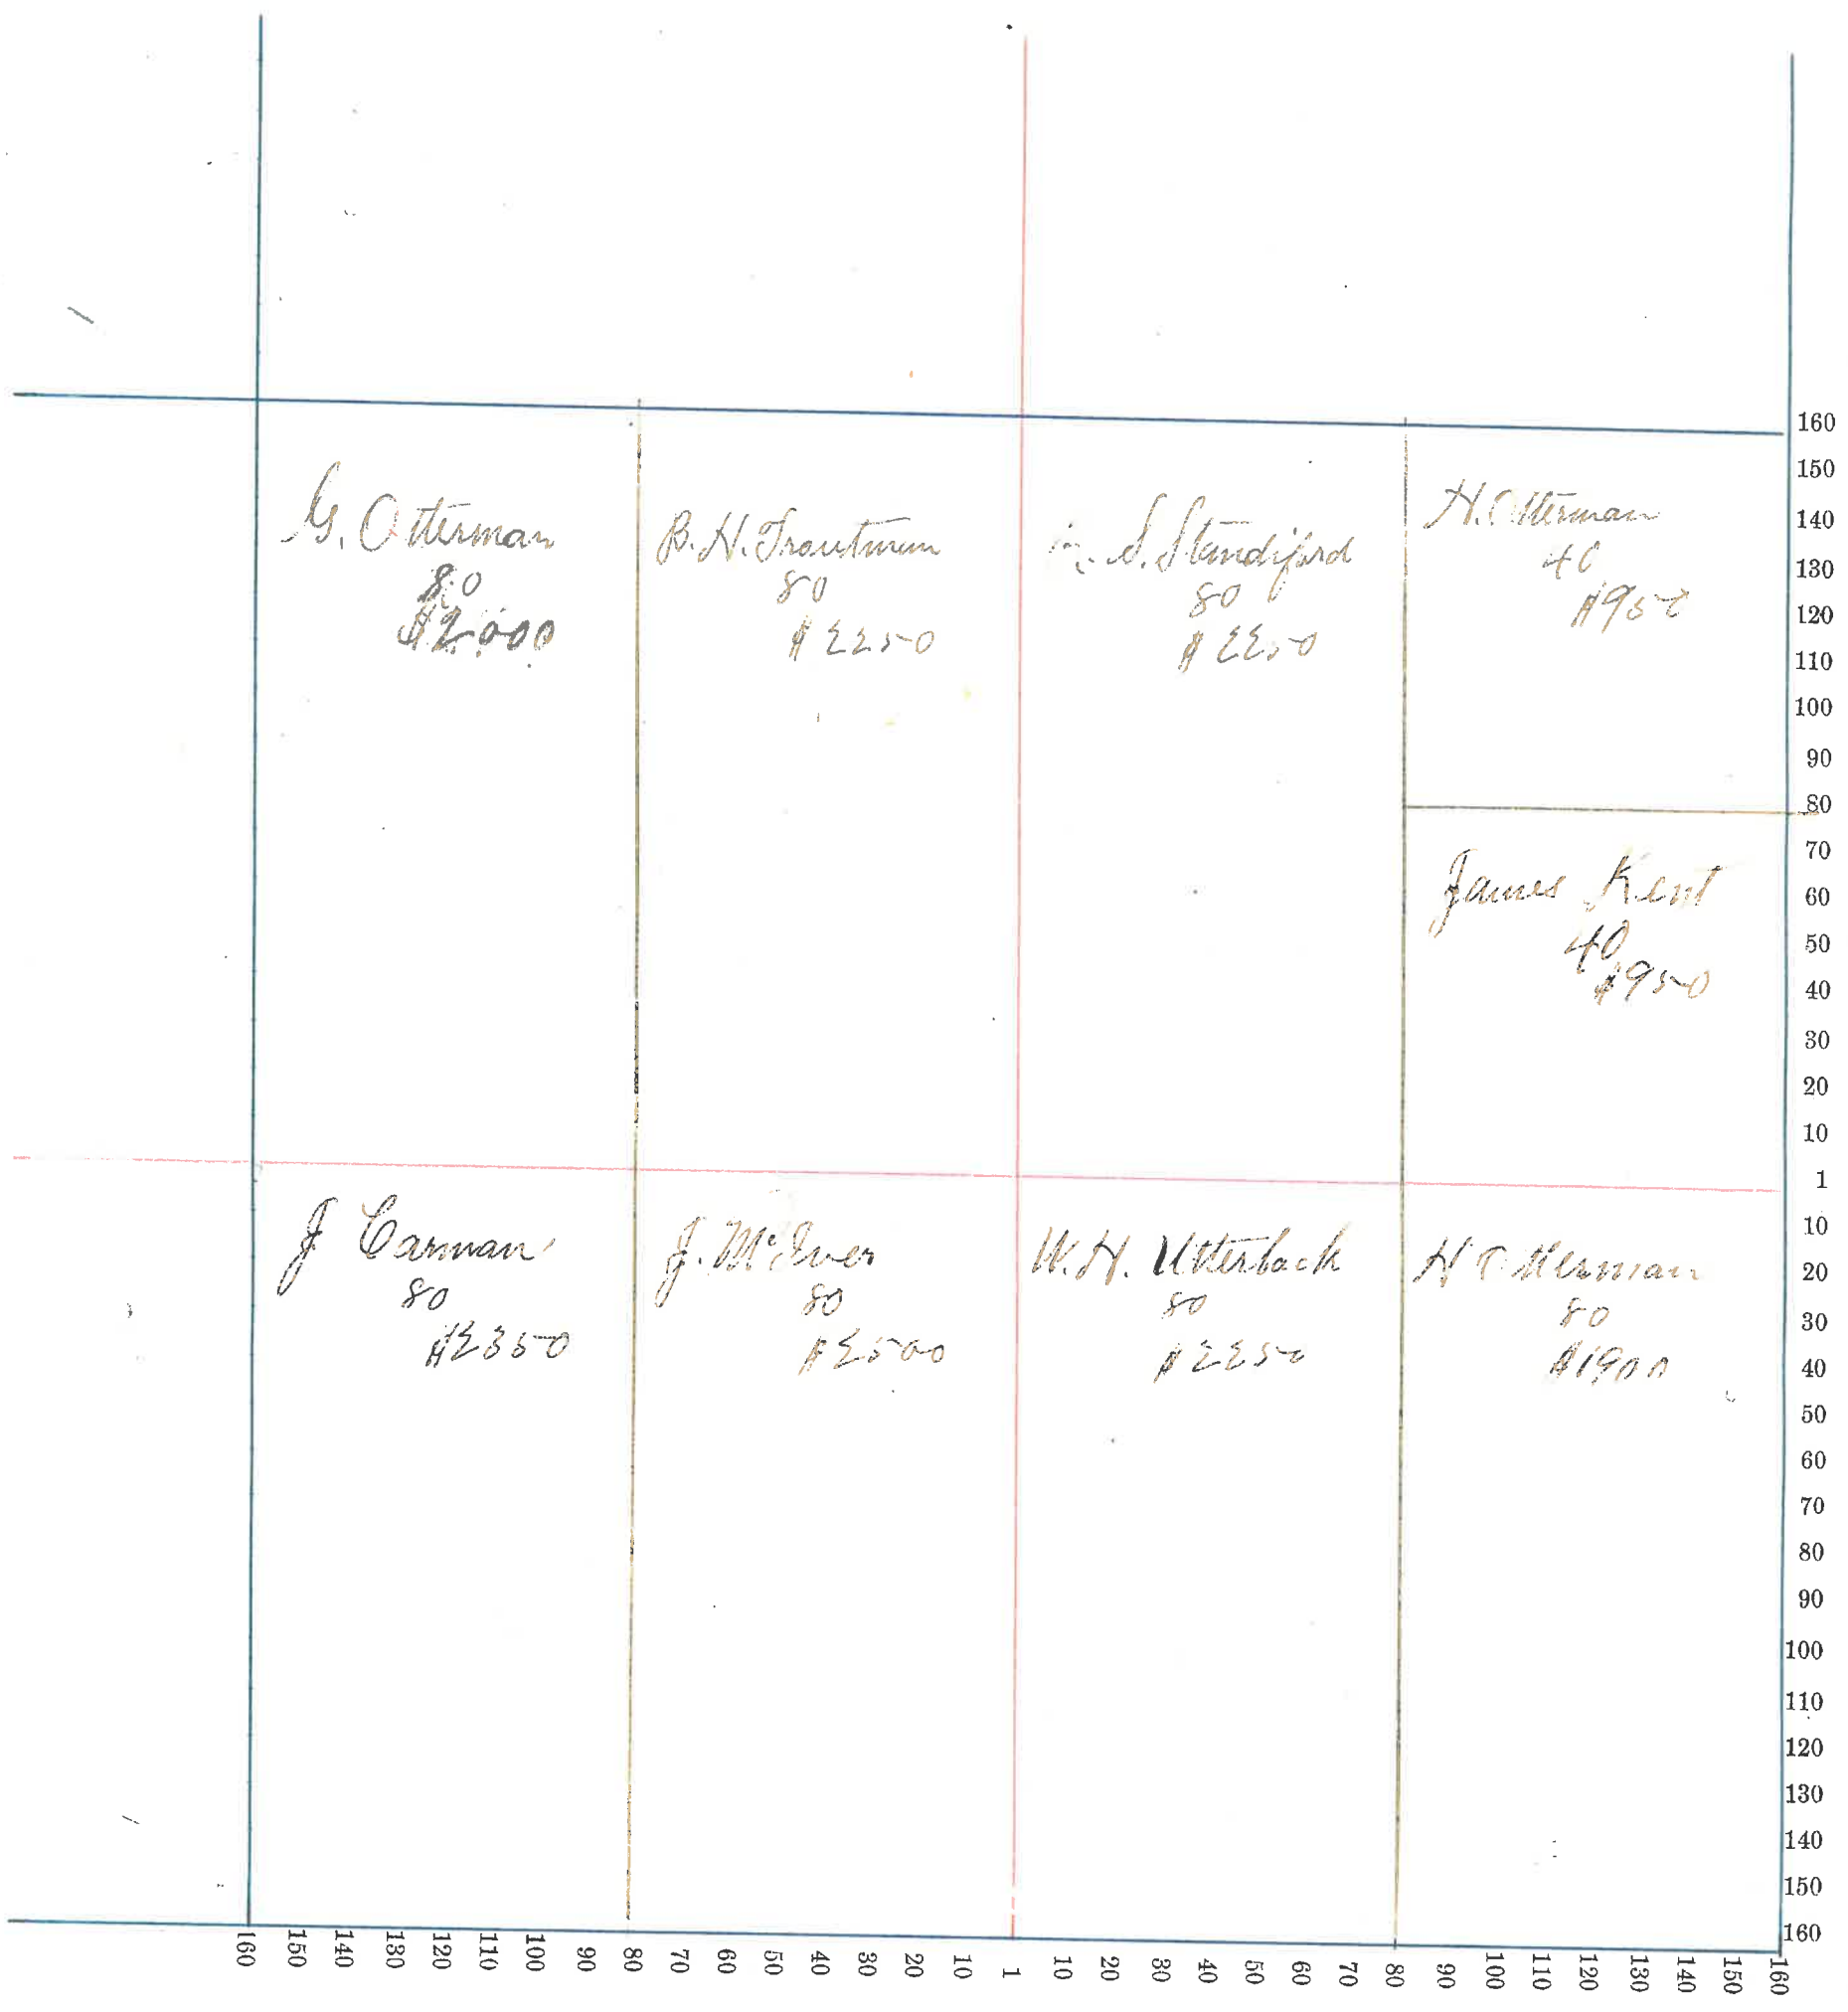 G. Otterman
80
$2000
B. H. Troutman
80
$2250
S. Standiford
80
$2250
H. Otterman
40
$950
James Kent
40
$950
J Carman
80
$2350
J. McIver
80
$2500
W. H. Utterback
80
$2250
H Otterman
80
$1900
160
150
140
130
120
110
100
90
80
70
60
50
40
30
20
10
1
10
20
30
40
50
60
70
80
90
100
110
120
130
140
150
160
160 150 140 130 120 110 100 90 80 70 60 50 40 30 20 10 1 10 20 30 40 50 60 70 80 90 100 110 120 130 140 150 160